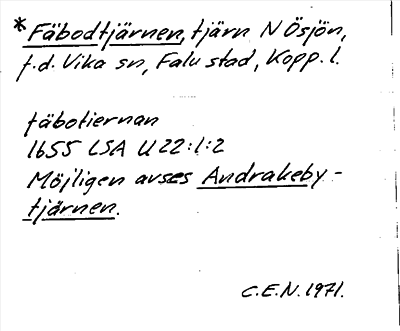 * Fäbodtjärnen, tjärn N Ösjön,
f.d. Vika sn, Falu stad, Kopp. l.
fäbotiernan
1655 LSA U 22:1:2
Möjligen avses Andrakeby-
tjärnen.
C.E.N. 1971.